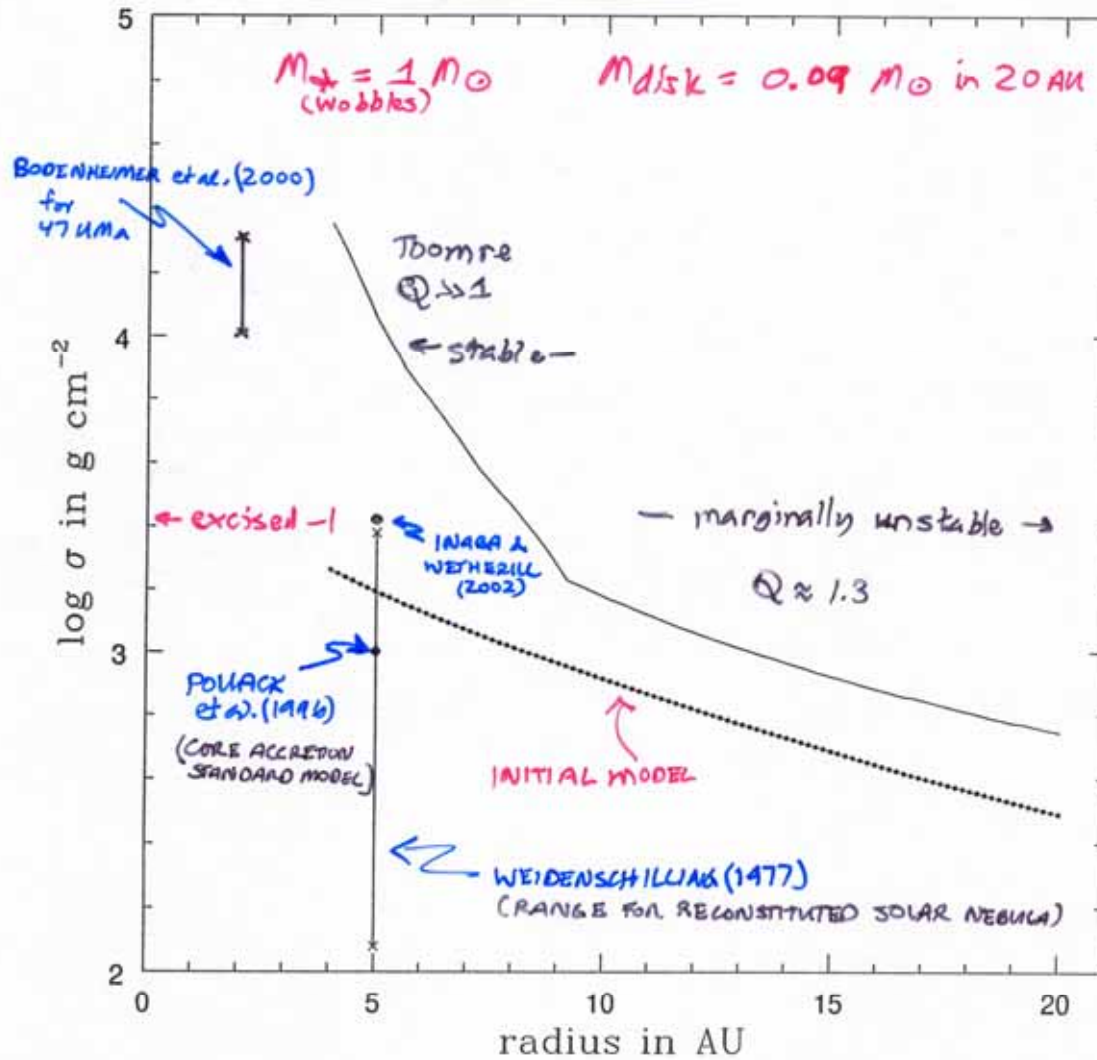 M* = 1 M⊙
(wobbles)
Mdisk = 0.09 M⊙ in 20 AU
BODENHEIMER et al. (2000)
for
47 UMa
Toomre
Q >> 1
← stable —
← excised —|
INABA &
WETHERILL
(2002)
— marginally unstable →
Q ≈ 1.3
POLLACK
et al. (1996)
(CORE ACCRETION
STANDARD MODEL)
INITIAL MODEL
WEIDENSCHILLING (1977)
(RANGE FOR RECONSTITUTED SOLAR NEBULA)
log σ in g cm⁻²
5
4
3
2
0 5 10 15 20
radius in AU